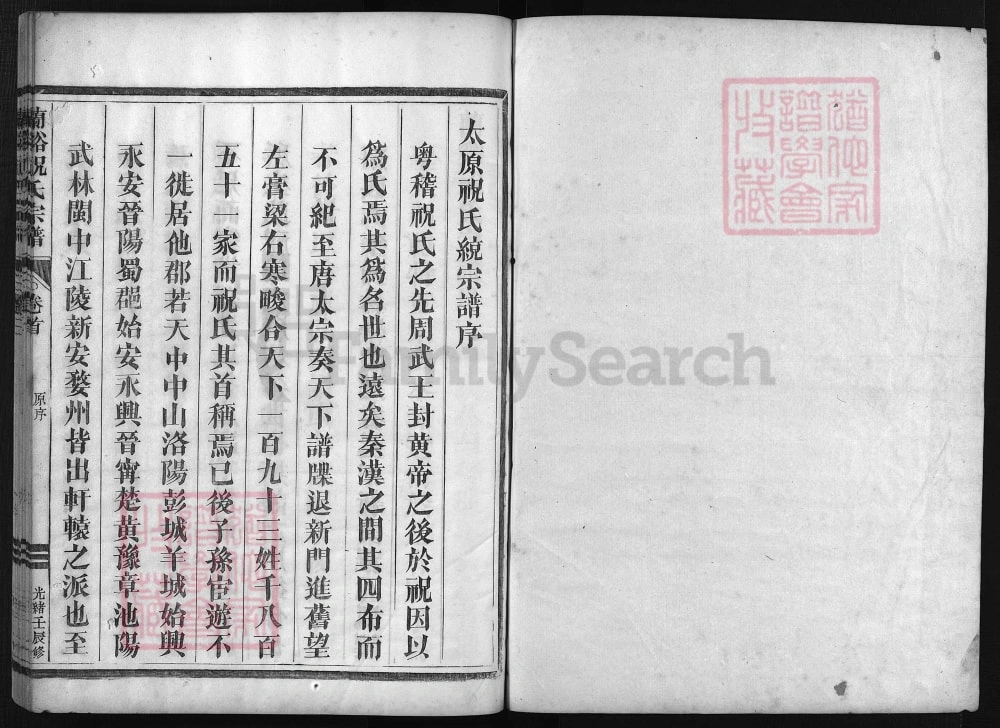 太原祝氏統宗譜序
粵稽祝氏之先周武王封黃帝之後於祝因以
為氏焉其為名世也遠矣秦漢之間其四布而
不可紀至唐太宗奏天下譜牒退新門進舊望
左膏粱右寒畯合天下一百九十三姓千八百
五十一家而祝氏其首稱焉已後子孫宦遊不
一徙居他郡若天中中山洛陽彭城羊城始興
永安晉陽蜀郡始安永興晉寧楚黃豫章池陽
武林閩中江陵新安婺州皆出軒轅之派也至
蘭谿祝氏宗譜
卷首
原序
光緒壬辰修
FamilySearch
譜學會
收藏